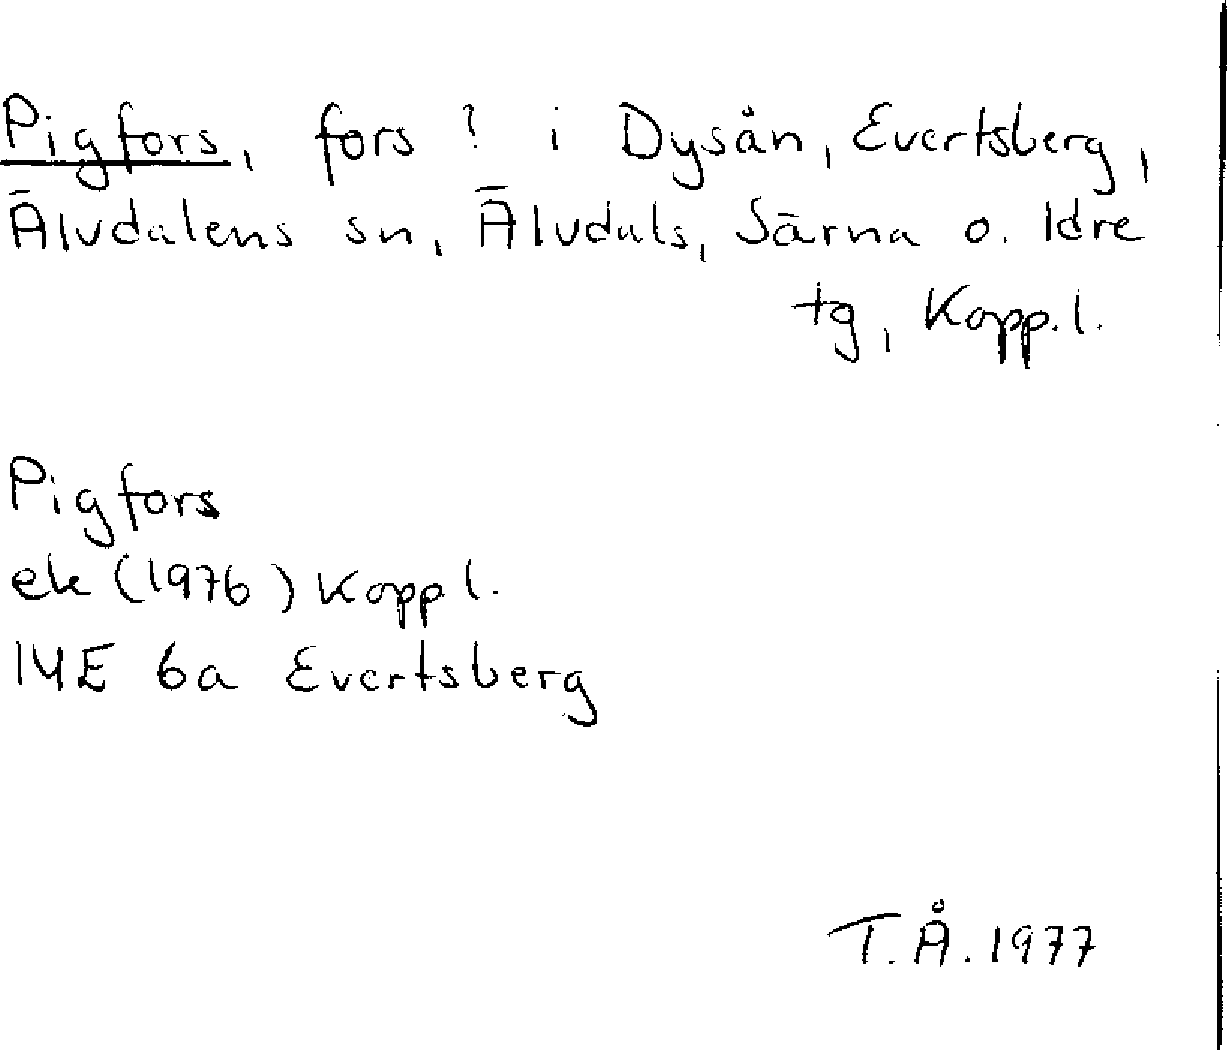 Pigfors, fors? i Dysån, Evertsberg,
Älvdalens sn, Älvdals, Särna o. Idre
tg, Kopp.l.
Pigfors
ek (1976) Kopp l.
14E 6a Evertsberg
T.Å. 1977